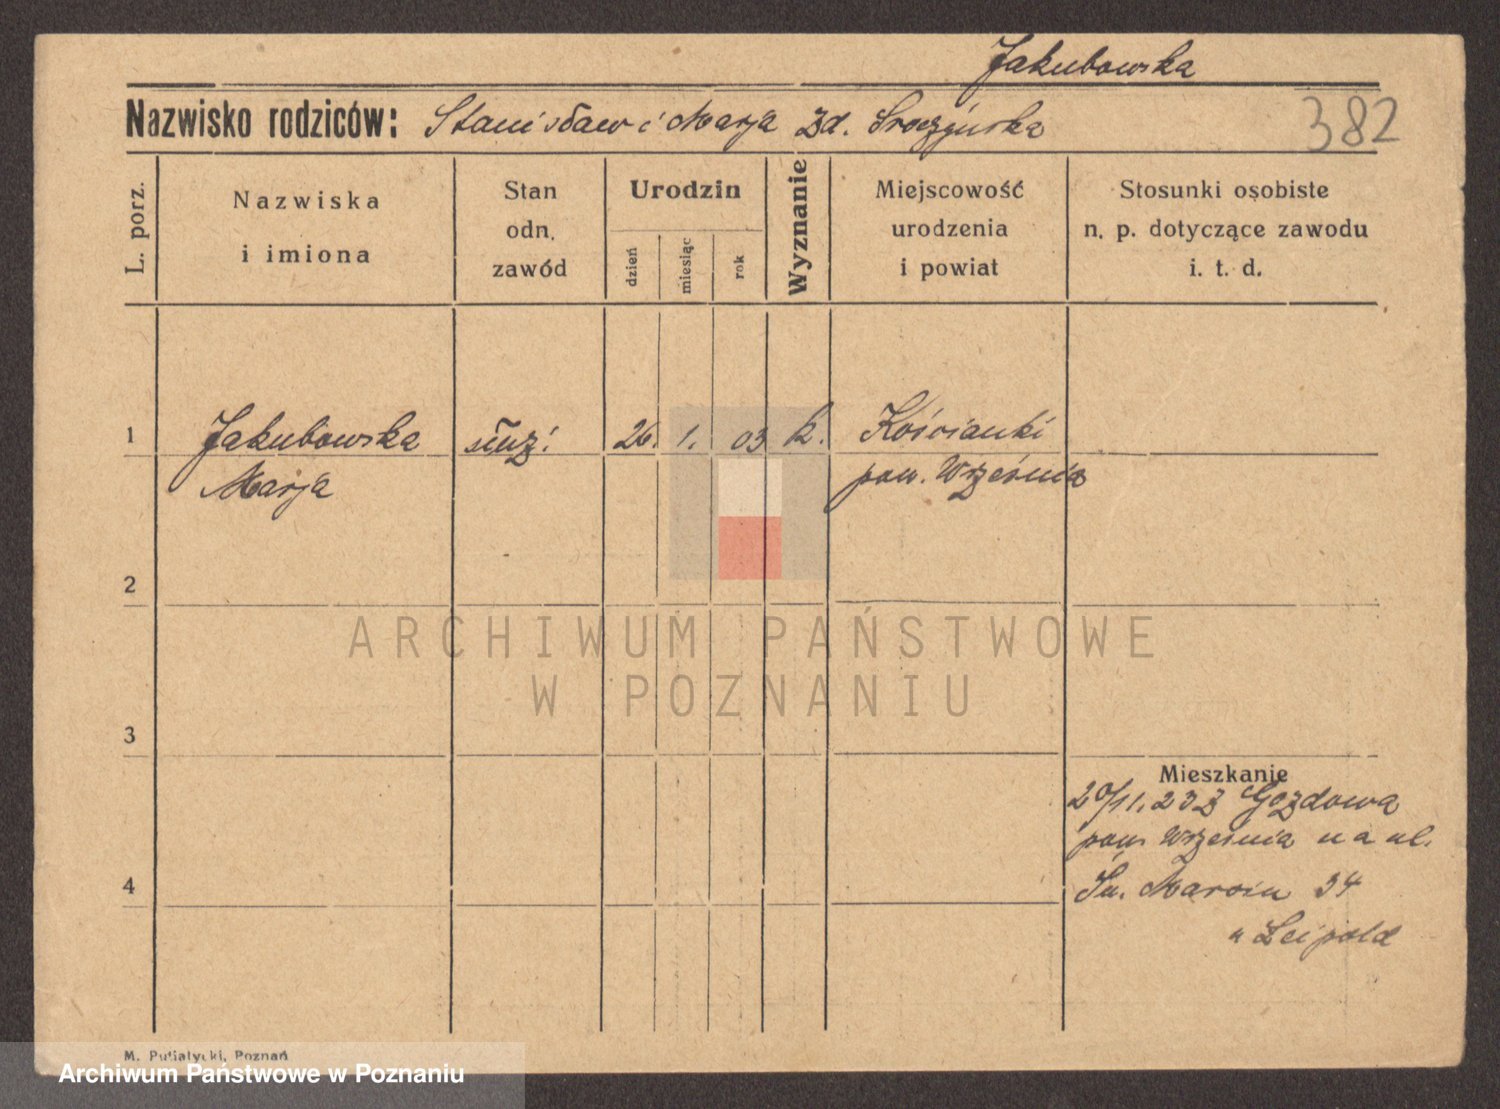 Jakubowska
Nazwisko rodziców: Stanisław i Marja zd. Sroczyńska
382
L. porz.
Nazwiska
i imiona
Stan
odn.
zawód
Urodzin
dzień
miesiąc
rok
Wyznanie
Miejscowość
urodzenia
i powiat
Stosunki osobiste
n. p. dotyczące zawodu
i. t. d.
1 Jakubowska służ. 26. 1. 03 k. Kościanki
Marja pow. Września
2
ARCHIWUM PAŃSTWOWE
W POZNANIU
3
Mieszkanie
20/11.23 z Gozdowa
pow Września na ul.
4
Św. Marcin 34
u Leipold
M. Putiatycki, Poznań
Archiwum Państwowe w Poznaniu